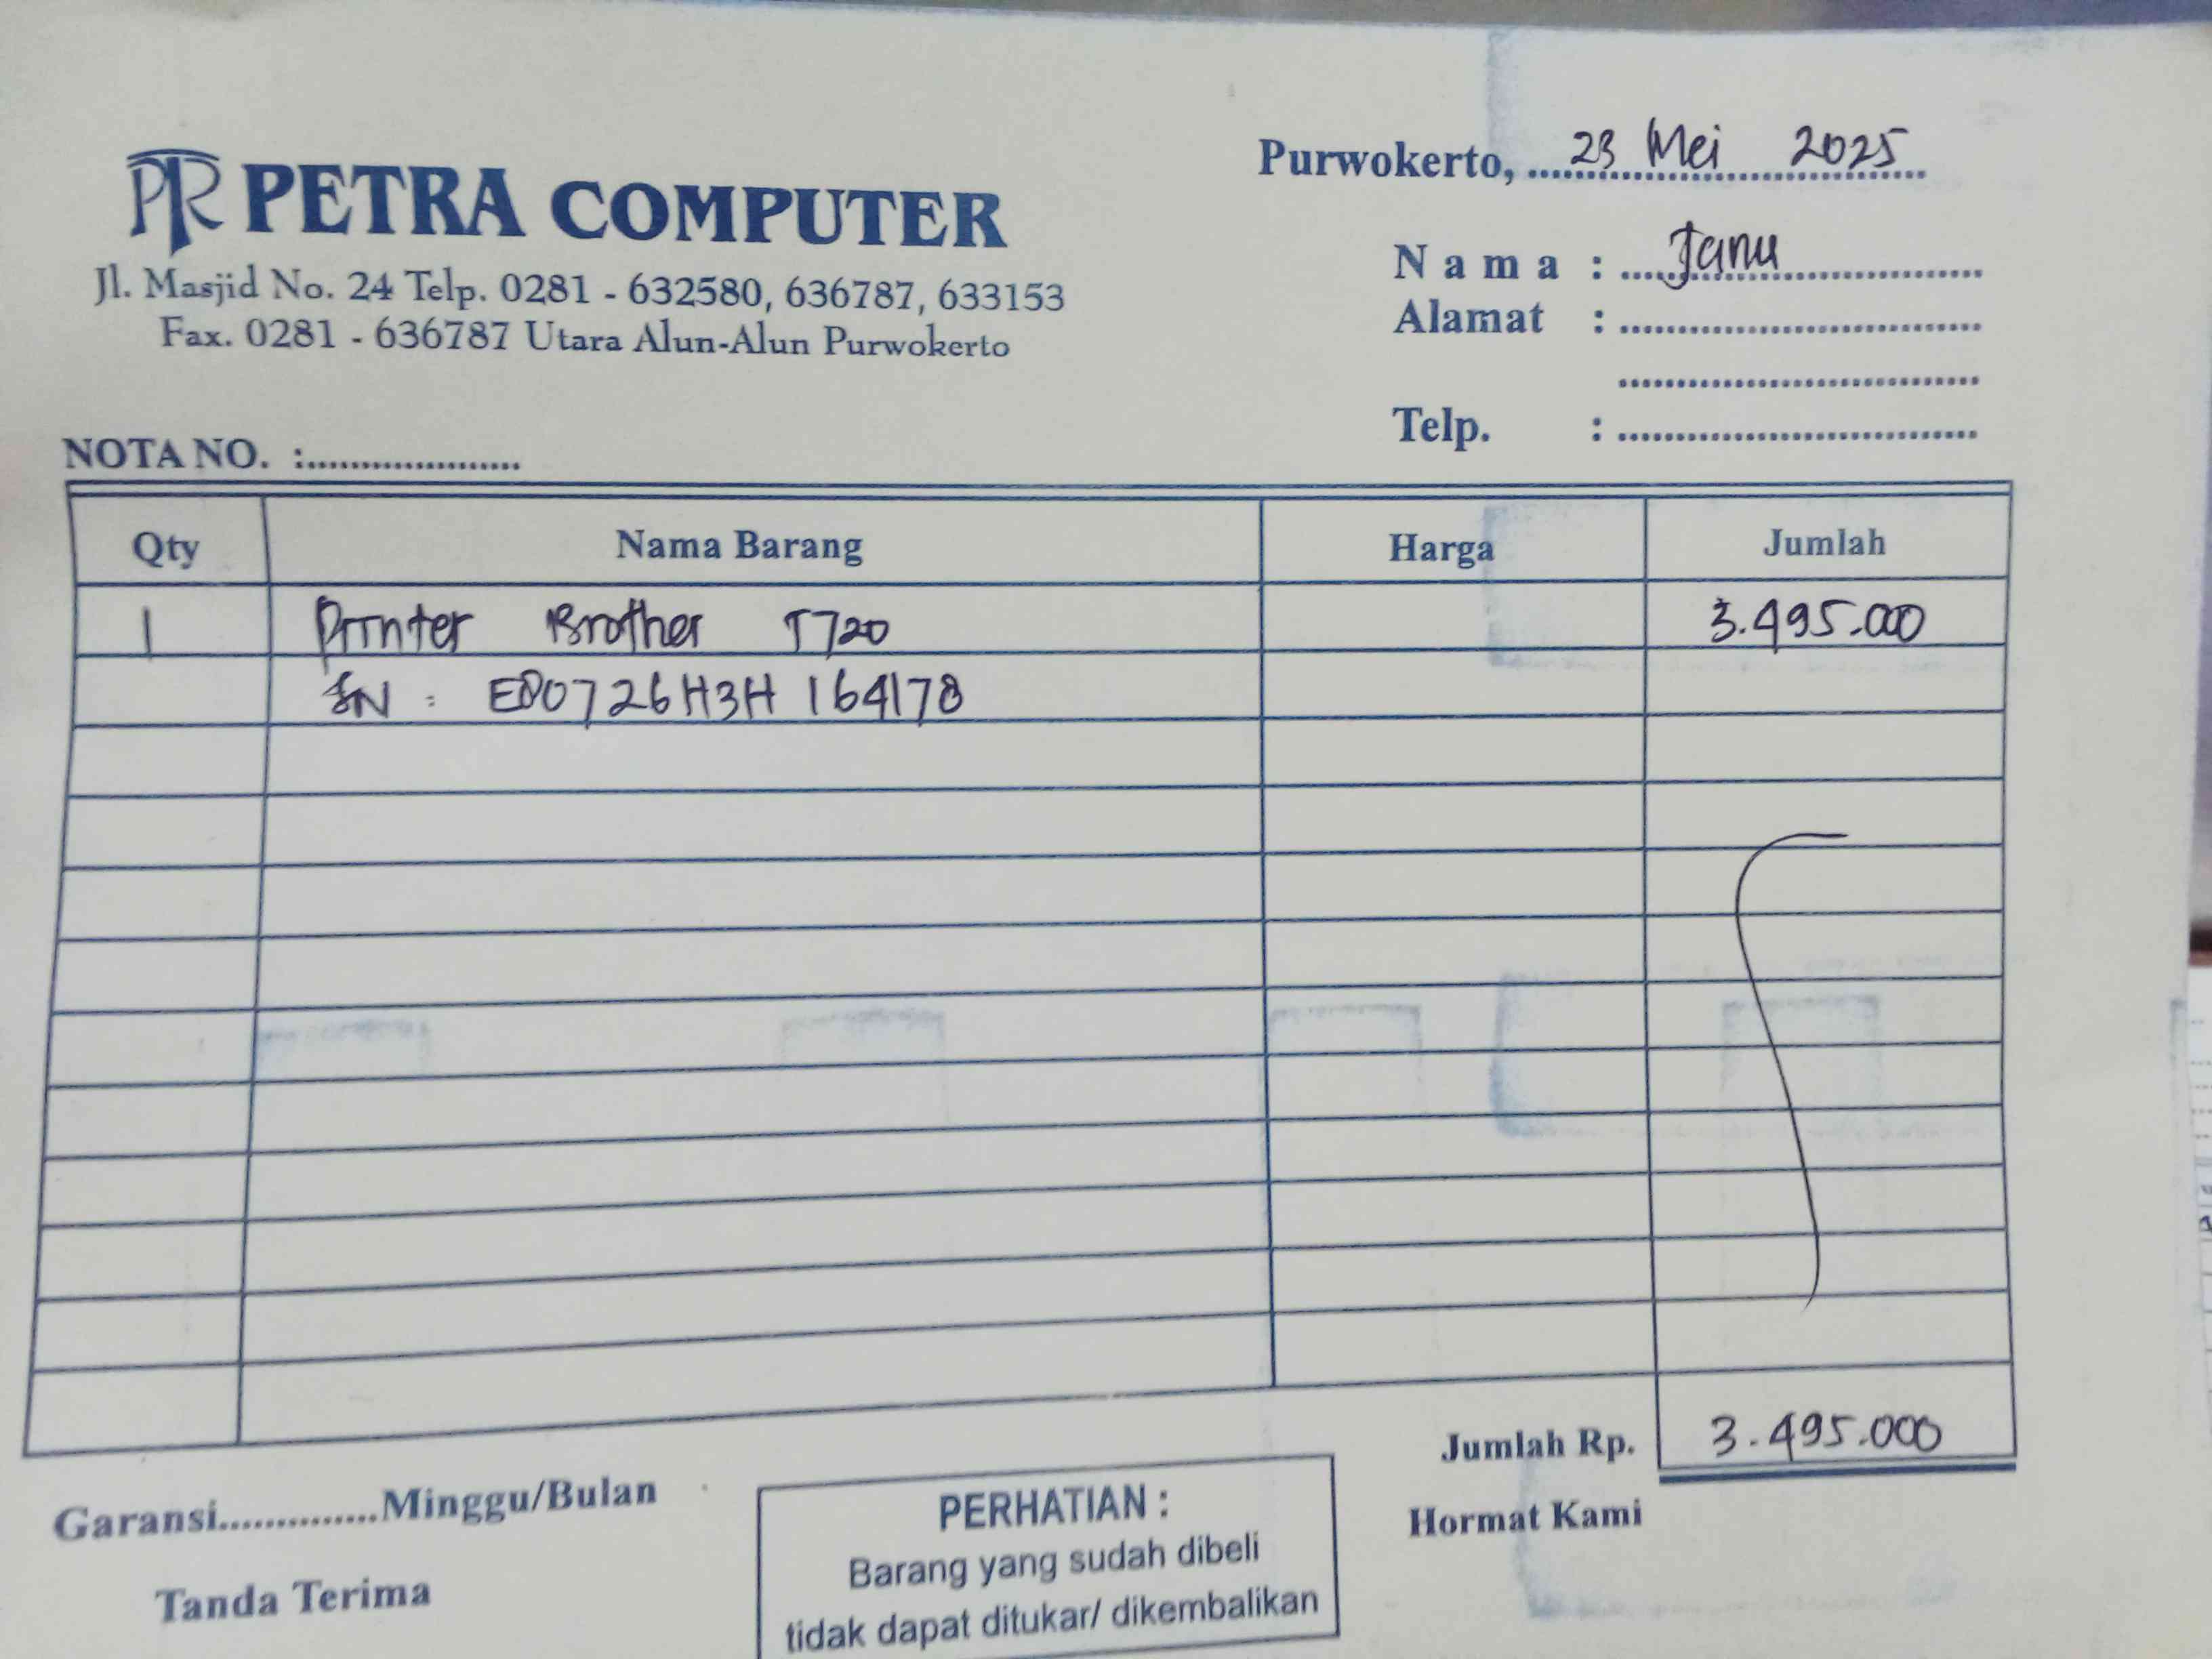 PR PETRA COMPUTER
Jl. Masjid No. 24 Telp. 0281 - 632580, 636787, 633153
Fax. 0281 - 636787 Utara Alun-Alun Purwokerto
Purwokerto, 23 Mei 2025
Nama : Janu
Alamat :
Telp. :
NOTA NO. :
Qty Nama Barang Harga Jumlah
1 Printer Brother T720 3.495.000
SN : E80726H3H164178
Jumlah Rp. 3.495.000
Garansi..............Minggu/Bulan
Hormat Kami
Tanda Terima
PERHATIAN :
Barang yang sudah dibeli
tidak dapat ditukar/ dikembalikan